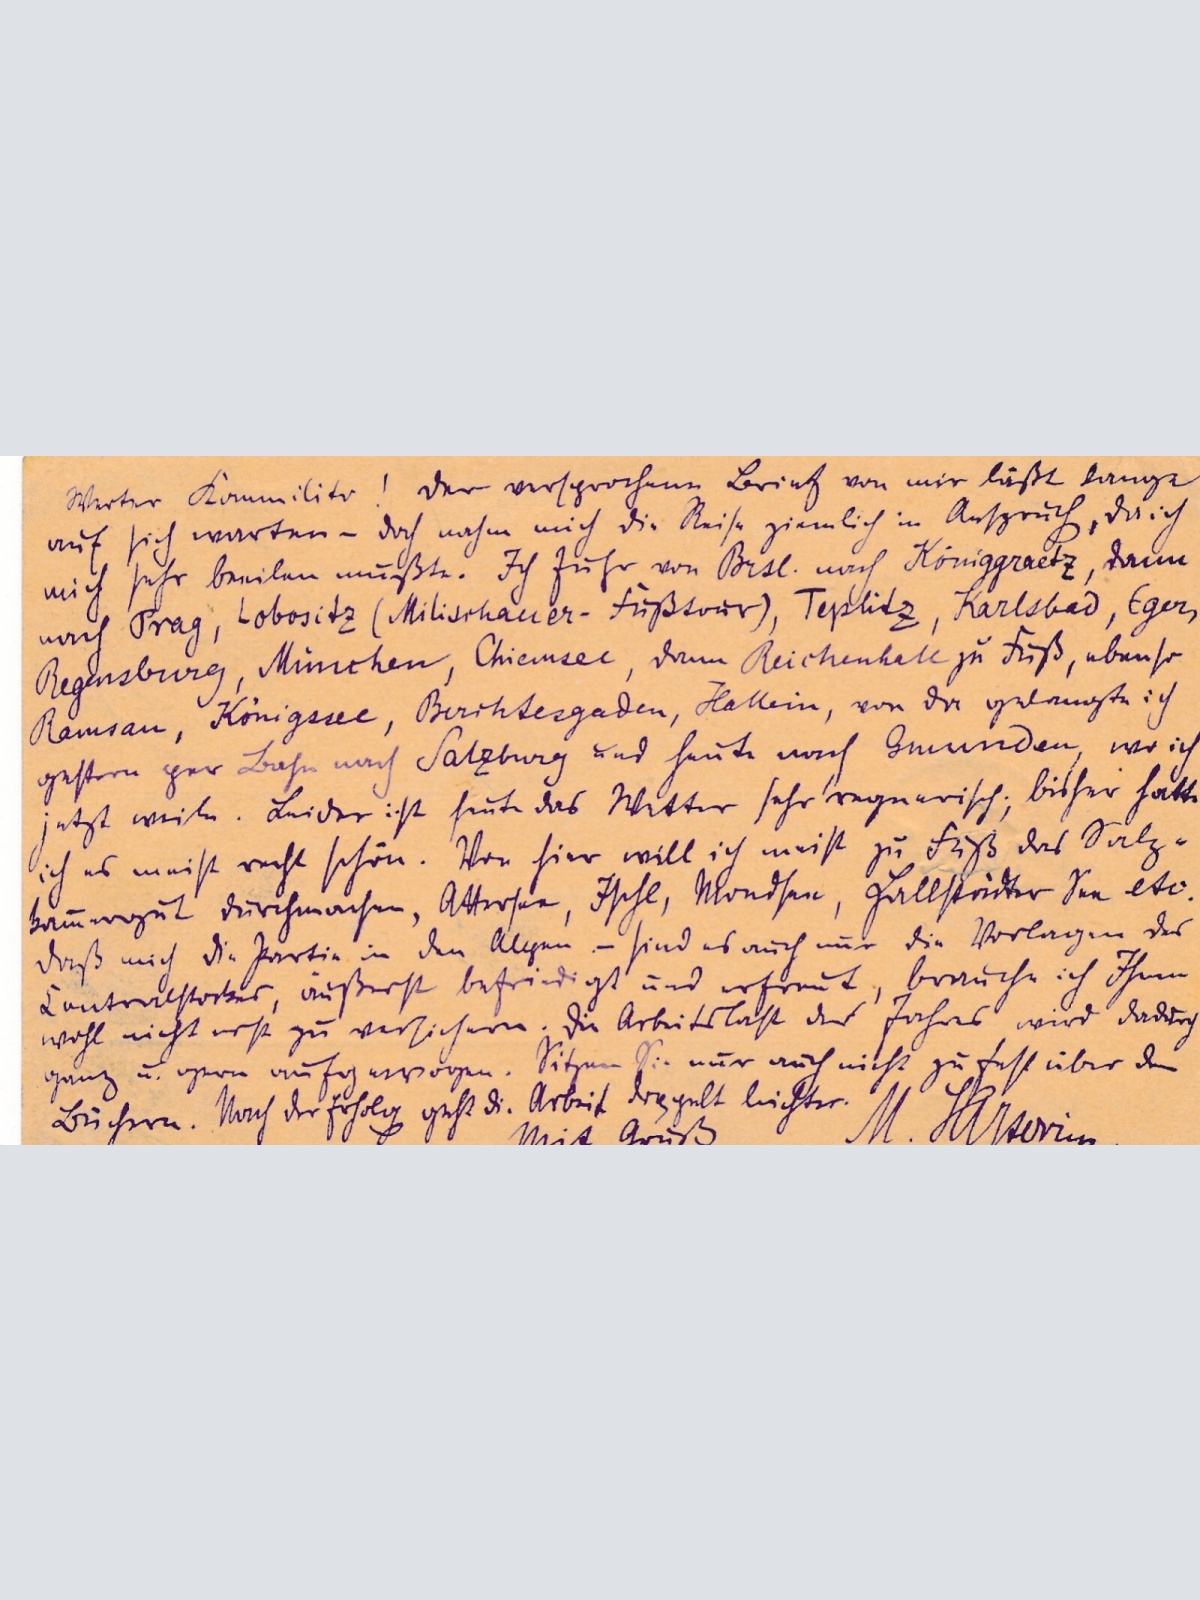 Werter Kommilito! Der versprochene Brief von mir läßt lange
auf sich warten – doch nahm mich die Reise ziemlich in Anspruch, da ich
mich sehr beeilen mußte. Ich fuhr von Bresl. nach Königgraetz, dann
nach Prag, Lobositz (Milischauer-Fußtour), Teplitz, Karlsbad, Eger,
Regensburg, München, Chiemsee, dann Reichenhall zu Fuß, ebenso
Ramsau, Königssee, Berchtesgaden, Hallein, von da gelangte ich
gestern per Bahn nach Salzburg und heute nach Gmunden, wo ich
jetzt weile. Leider ist heute das Wetter sehr regnerisch; bisher hatte
ich es meist recht schön. Von hier will ich meist zu Fuß das Salz-
kammergut durchmachen, Attersee, Ischl, Mondsee, Hallstädter See etc.
Daß mich die Partie in den Alpen – sind es auch nur die Vorlagen des
Centralstockes, äußerst befriedigt und erfreut, brauche ich Ihnen
wohl nicht erst zu versichern. Die Arbeitslast des Jahres wird dadurch
ganz u. gern aufgewogen. Sitzen Sie nur auch nicht zu fest über den
Büchern. Nach der Erholg geht die Arbeit doppelt leichter.
Mit Gruß M.